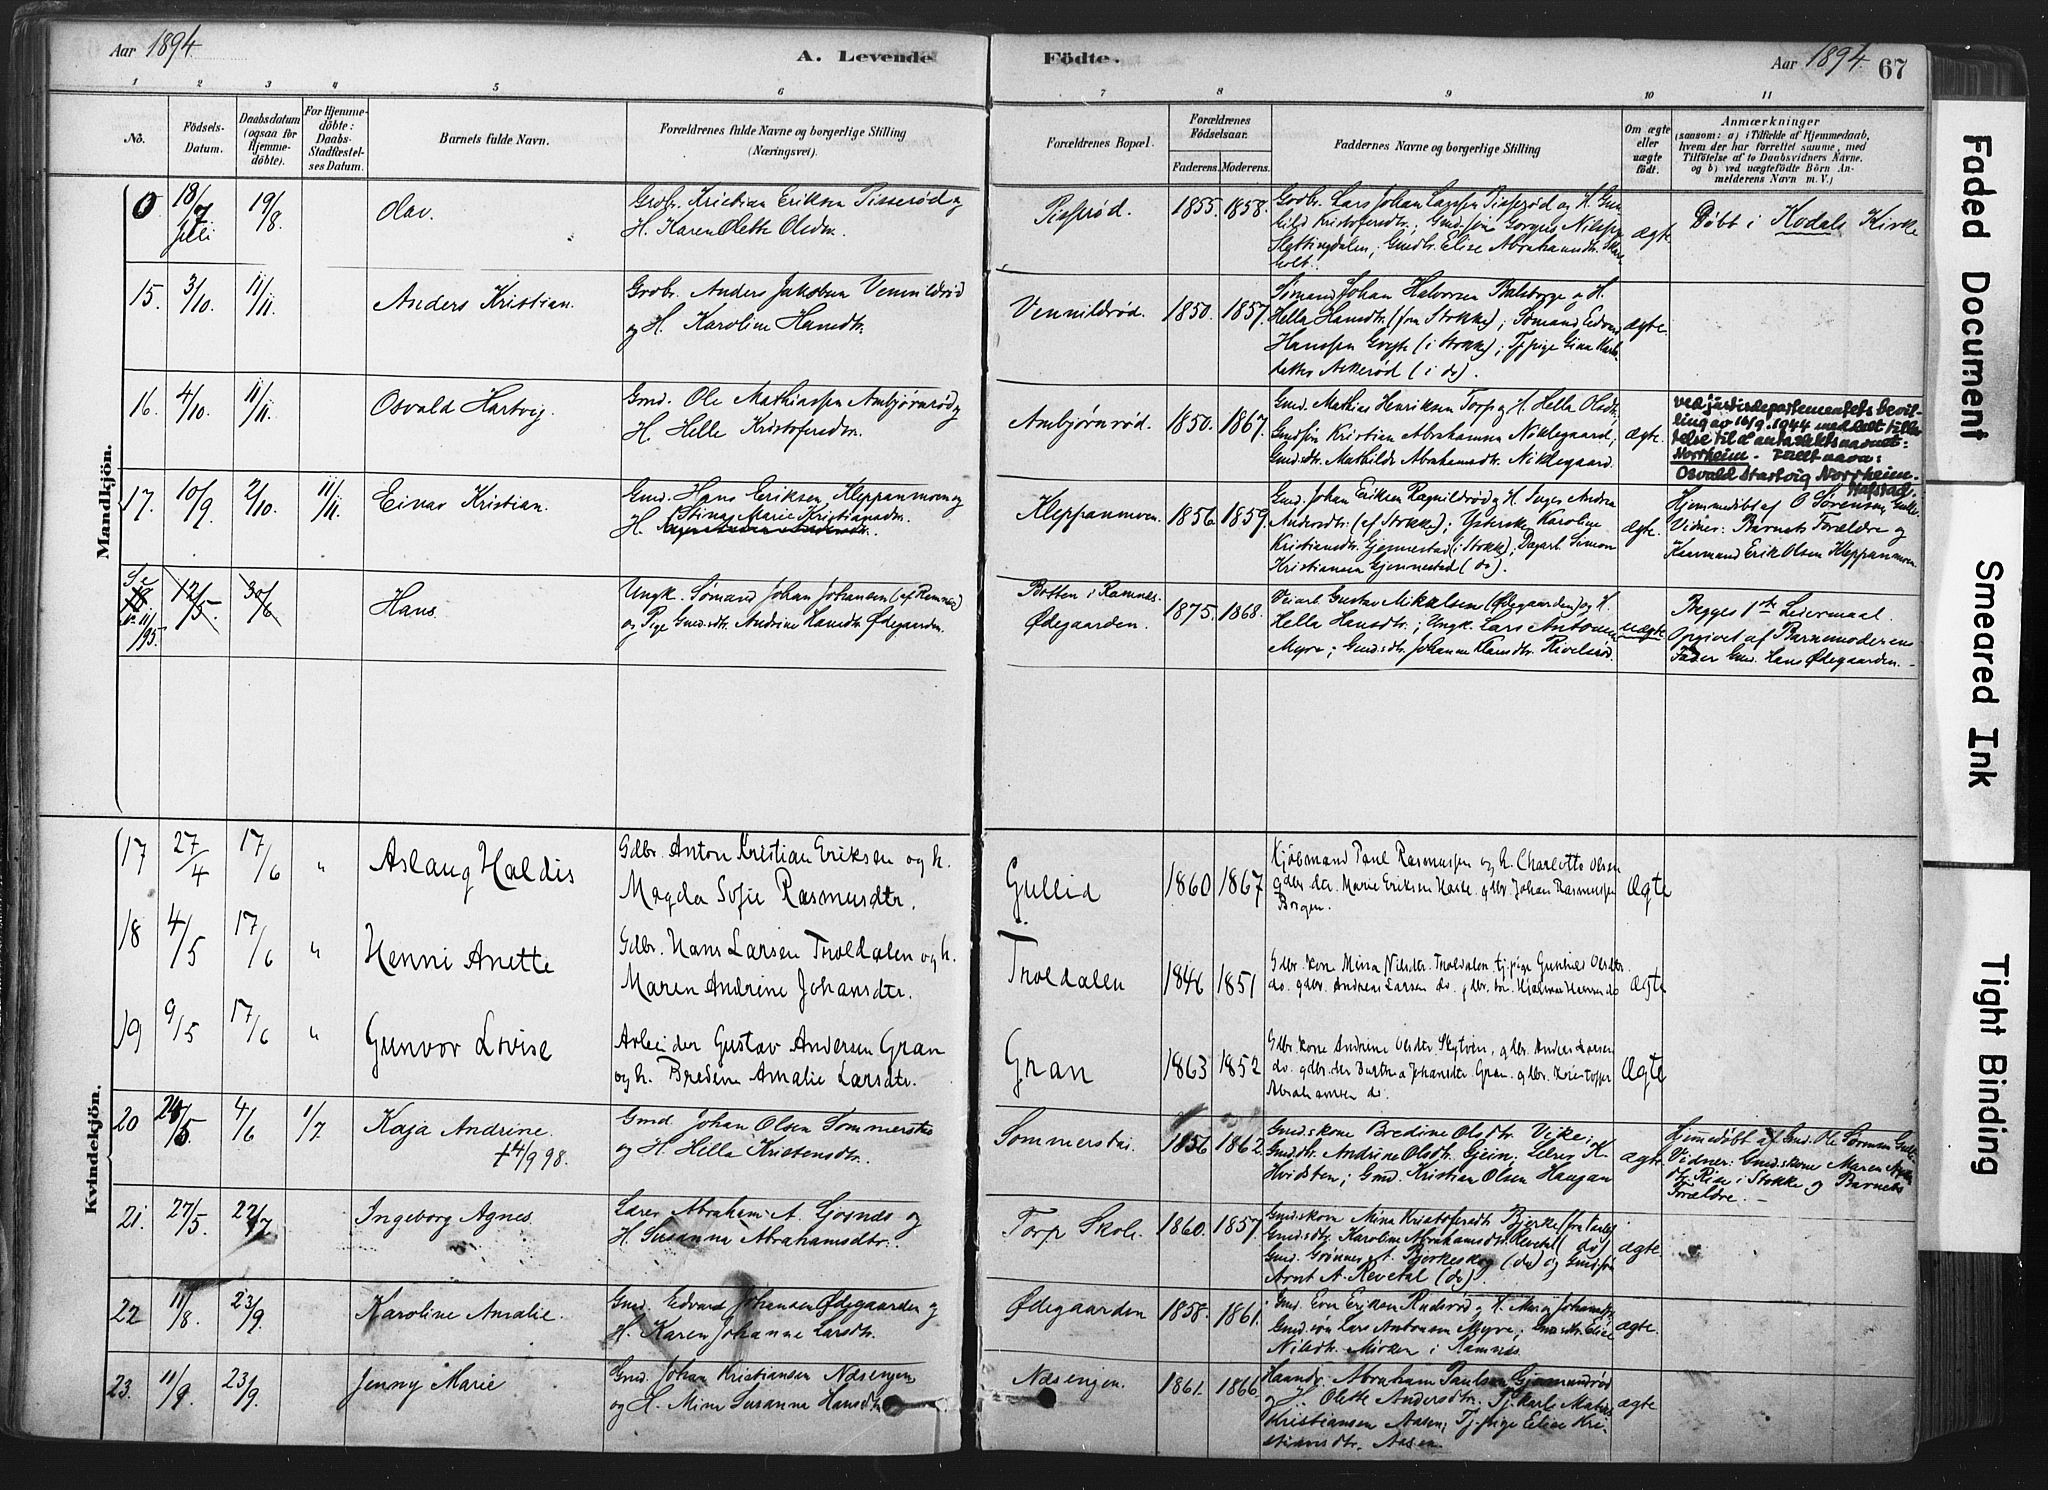 Aar 1894
A. Levende Födte.
Aar 1894. 67
1 2 3 4 5 6 7 8 9 10 11
No.
Födsels-
Datum.
Daabsdatum
(ogsaa for
Hjemme-
döbte).
For Hjemme-
döbte:
Daabs-
Stadfæstel-
ses Datum.
Barnets fulde Navn.
Forældrenes fulde Navne og borgerlige Stilling
(Næringsvei).
Forældrenes Bopæl.
Forældrenes
Födselsaar.
Faderens. Moderens.
Faddernes Navne og borgerlige Stilling
Om ægte
eller
uægte
födt.
Anmærkninger
(saasom: a) i Tilfælde af Hjemmedaab,
hvem der har forrettet samme, med
Tilföielse af to Daabsvidners Navne,
og b) ved uægtefödte Börn An-
melderens Navn m. V.)
Mandkjön.
0 18/7 Juli 19/8 Olav.
Grdbr. Kristian Eriksen Pisserød og
H. Karen Olette Olsdtr.
Pisserød. 1855. 1858.
Grdbr. Lars Johan Larsen Pisserød og H. Gun-
hild Kristofersdtr.; Gmd.søn Nilsen
Slettingdalen; Gmdsdtr. Elise Abrahamsdtr. Skar-
holt.
ægte
Døbt i Kodals Kirke
15. 3/10. 11/11. Anders Kristian.
Grdbr. Anders Jakobsen Vennildrød
og H. Karoline Hansdtr.
Vennildrød. 1850. 1857.
Sømand Johan Halvorsen og H.
Hella Hansdtr. (fra Stokke); Sømand
Hanssen (i Stokke); Tj.pige Gina
Askerød (i do).
ægte.
16. 4/10. 11/11. Osvald Hartvig.
Gmd. Ole Mathiassen Ambjørnrød og
H. Helle Kristofersdtr.
Ambjørnrød. 1850. 1867.
Gmd. Mathias Henriksen Torp og H. Hella Olsdtr.
Gmdsøn Kristian Abrahamsen Niklegaard;
Gmdsdtr. Mathilde Abrahamsdtr. Niklegaard.
ægte.
Ved justisdepartementets bevil-
ling av 16/9.1944 meddelt tilla-
telse til å anta slektsnavnet:
Norrheim. - Fullt navn:
Osvald Hartvig Norrheim
17. 10/9. 2/10. 11/11. Einar Kristian.
Gmd. Hans Eriksen Kleppanmoen og
H. Stina Marie Kristiansdtr.
Kleppanmoen. 1856. 1859.
Gmd. Johan Eriksen Ragnildrød og H. Inger Andrea
Andersdtr. (af Stokke); Karoline
Kristiansdtr. Gjennestad (i Stokke); Dagarb. Simon
Kristiansen Gjennestad (do).
ægte.
Hjemmedøbt af O Sørensen,
Vidner: Barnets Forældre og
Kaarmand Erik Olsen Kleppanmoen.
Se
No. 11/95. 12/5. 30/6 Hans.
Ungk. Sømand Johan Johansen (af Ramnæs)
og Pige Gmdsdtr. Andrine Hansdtr. Ødegaarden.
Botten i Ramnes.
Ødegaarden. 1875. 1868.
Veiarb. Gustav Mikalsen (Ødegaarden) og H.
Hella Hansdtr.; Ungk. Lars Antonsen
Myre; Gmdsdtr. Johanne Rivelsrød.
uægte
Begges 1ste Leiermaal.
Opgivet af Barnemoderens
Fader Gmd. Hans Ødegaarden.
Kvindekjön.
17 27/4 17/6 " Aslaug Haldis
Gdbr. Anton Kristian Eriksen og h.
Magda Sofie Rasmusdtr.
Gullid 1860 1867
Kjøbmand Paul Rasmussen og h. Charlotte Olsen
gdbr. dtr. Marie Eriksen gdbr. Johan Rasmussen
Borgen.
Ægte
18 4/5 17/6 " Henni Anette
Gdbr. Hans Larsen Troldalen og h.
Maren Andrine Johansdtr.
Troldalen 1846 1851
Gdbr. kone Mina Nilsdtr. Troldalen, tj.pige Gunhild Olsdtr
do. gdbr. Andreas Larsen do. gdbr. søn Hjalmar Hansen do
Ægte
19 9/5 17/6 " Gunvor Lovise
Arbeider Gustav Andersen Gran
og h. Bredine Amalie Larsdtr.
Gran 1863 1852
Gdbr. kone Andrine Olsdtr. gdbr. Andreas Larsen
do. gdbr. dtr. Berthea Johansdtr. Gran. gdbr. Kristoffer
Abrahamsen do.
Ægte
20 28/5. 4/6 1/7 Kaja Andrine.
†4/9 98.
Gmd. Johan Olsen Sommerstøs
og H. Hella Kristensdtr.
Sommerstøs 1856 1862.
Gmdskone Bredine Olsdtr. Vike;
Gmdsdtr. Andrine Olsdtr. Gjein;
Hvidsten; Gmd. Kristian Olsen Haugan
ægte.
Hjemedøbt af Gmd. Ole Sørensen
Vidner: Gmdskone Maren
Rise i Stokke og Barnets
Forældre.
21. 27/5. 22/7 Ingeborg Agnes.
Lærer Abraham A. Gjernes og
H. Susanna Abrahamsdtr.
Torp Skole. 1860. 1857.
Gmdskone Mina Kristofersdtr. Bjerke
Gmdsdtr. Karoline Abrahamsdtr. Revetal (do)
Gmd. A. Bjerkeskog (do) og Gmdsøn
Arnt A. Revetal (do).
ægte
22 11/8. 23/9. Karoline Amalie.
Gmd. Edvard Johansen Ødegaarden og
H. Karen Johanne Larsdtr.
Ødegaarden 1858. 1861.
Gmd. Even Eriksen og H. Maren Johansdtr.
Gmd.søn Lars Antonsen Myre; Gmdsdtr. Elise
Nilsdtr. i Ramnæs.
ægte.
23. 11/9. 23/9. Jenny Marie
Gmd. Johan Kristiansen Næsengen
og H. Mina Susanne Hansdtr.
Næsengen. 1861. 1866.
Haandv. Abraham Paulsen
og H. Olette Andersdtr. Tj.karl Matias
Kristiansen Aasen; Tj.pige Elise Kri-
stiansdtr. Aasen
ægte
Faded Document
Smeared Ink
Tight Binding